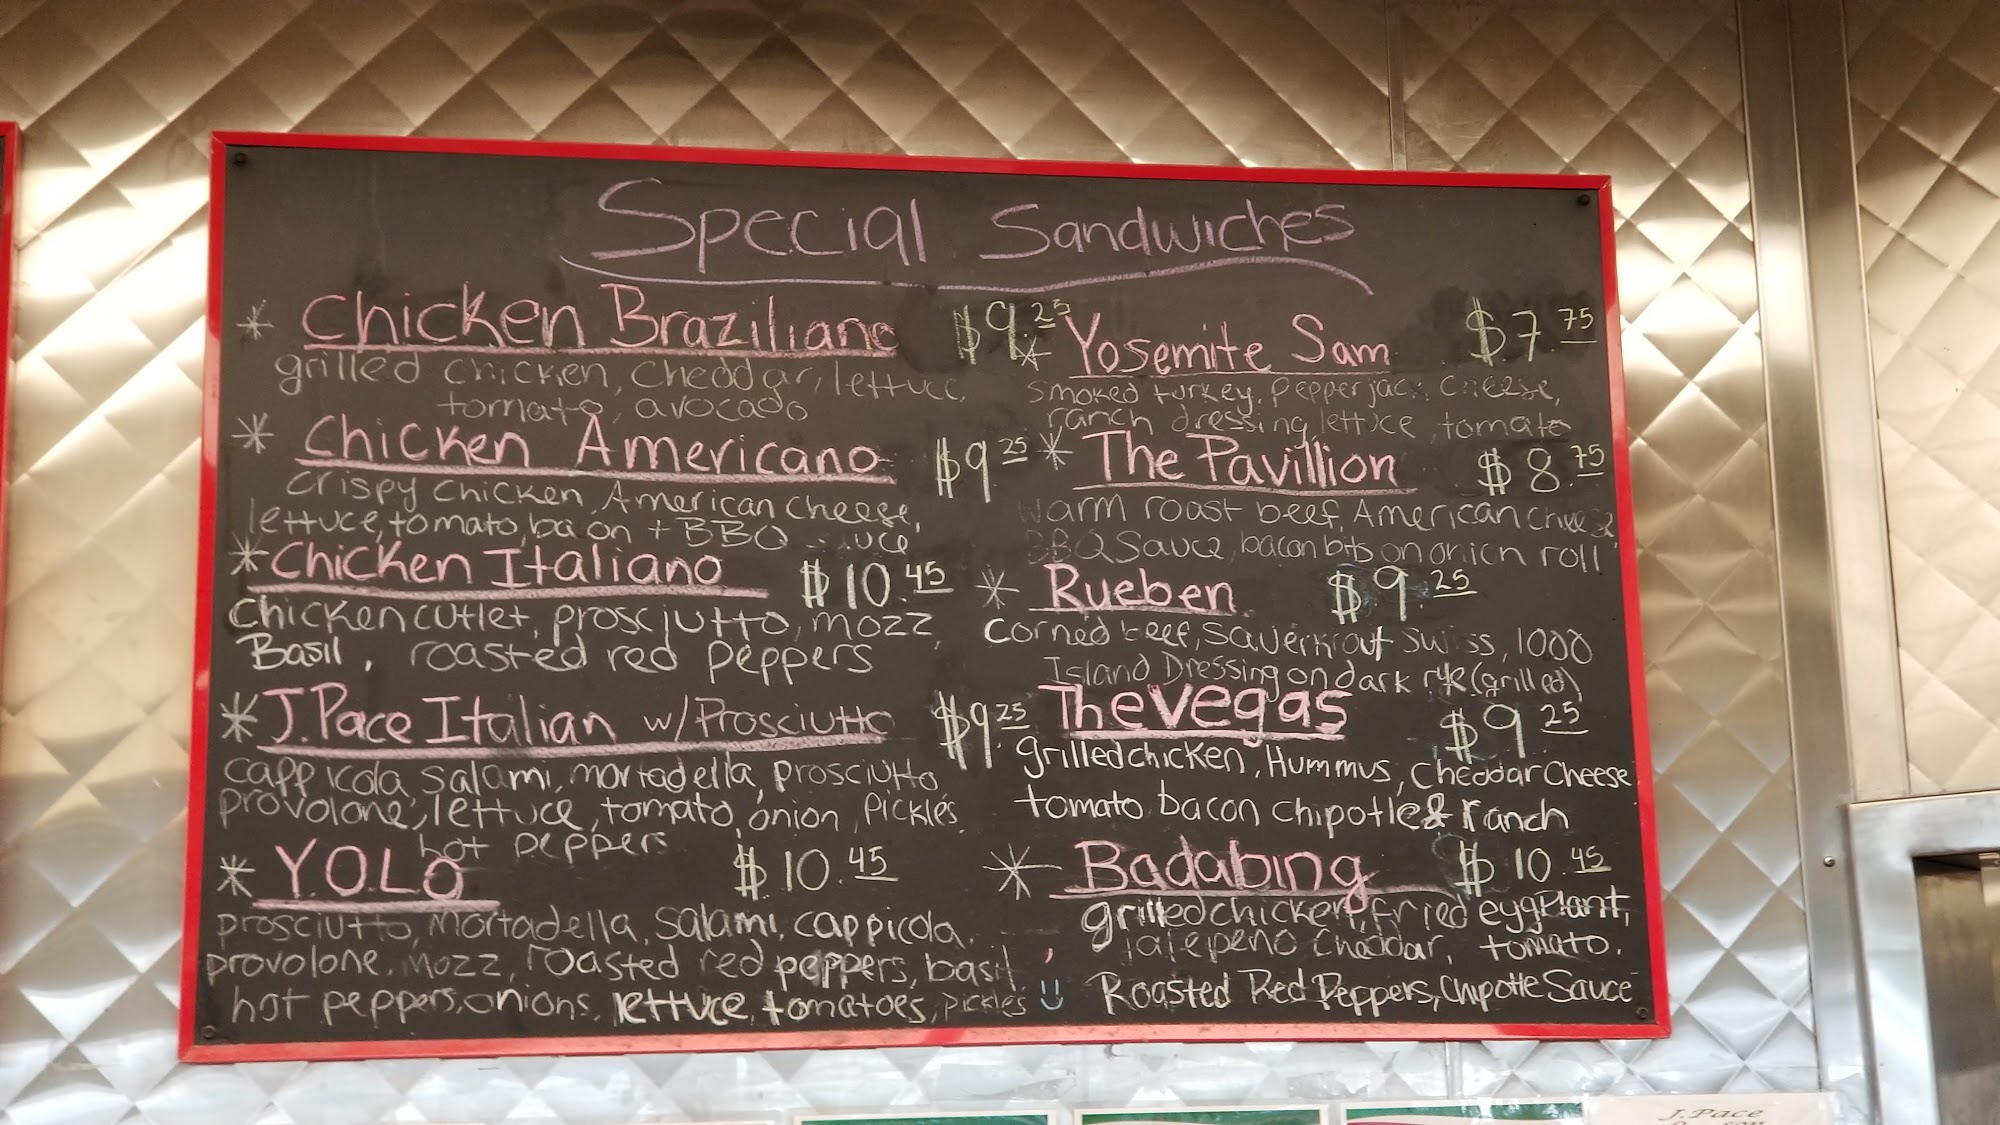 Special Sandwiches
* Chicken Braziliano $9.25
grilled chicken, cheddar, lettuce,
tomato, avocado
* Chicken Americano $9.25
crispy chicken, American cheese,
lettuce, tomato, bacon + BBQ sauce
* Chicken Italiano $10.45
chicken cutlet, prosciutto, mozz,
Basil, roasted red peppers
* J.Pace Italian w/Prosciutto $9.25
cappicola, salami, mortadella, prosciutto
provolone, lettuce, tomato, onion, pickles,
hot peppers
* Y.O.L.O $10.45
prosciutto, mortadella, salami, cappicola,
provolone, mozz, roasted red peppers, basil,
hot peppers, onions, lettuce, tomatoes, pickles
* Yosemite Sam $7.75
smoked turkey, pepperjack cheese,
ranch dressing, lettuce, tomato
* The Pavillion $8.75
warm roast beef, American cheese
BBQ sauce, bacon bits on onion roll
* Rueben $9.25
corned beef, sauerkrout swiss, 1000
Island Dressing on dark rye (grilled)
The Vegas $9.25
grilled chicken, Hummus, cheddar cheese
tomato bacon chipotle & ranch
* Badabing $10.45
grilled chicken, fried eggplant,
jalepeno cheddar, tomato,
Roasted Red Peppers, Chipotle Sauce
J.Pace